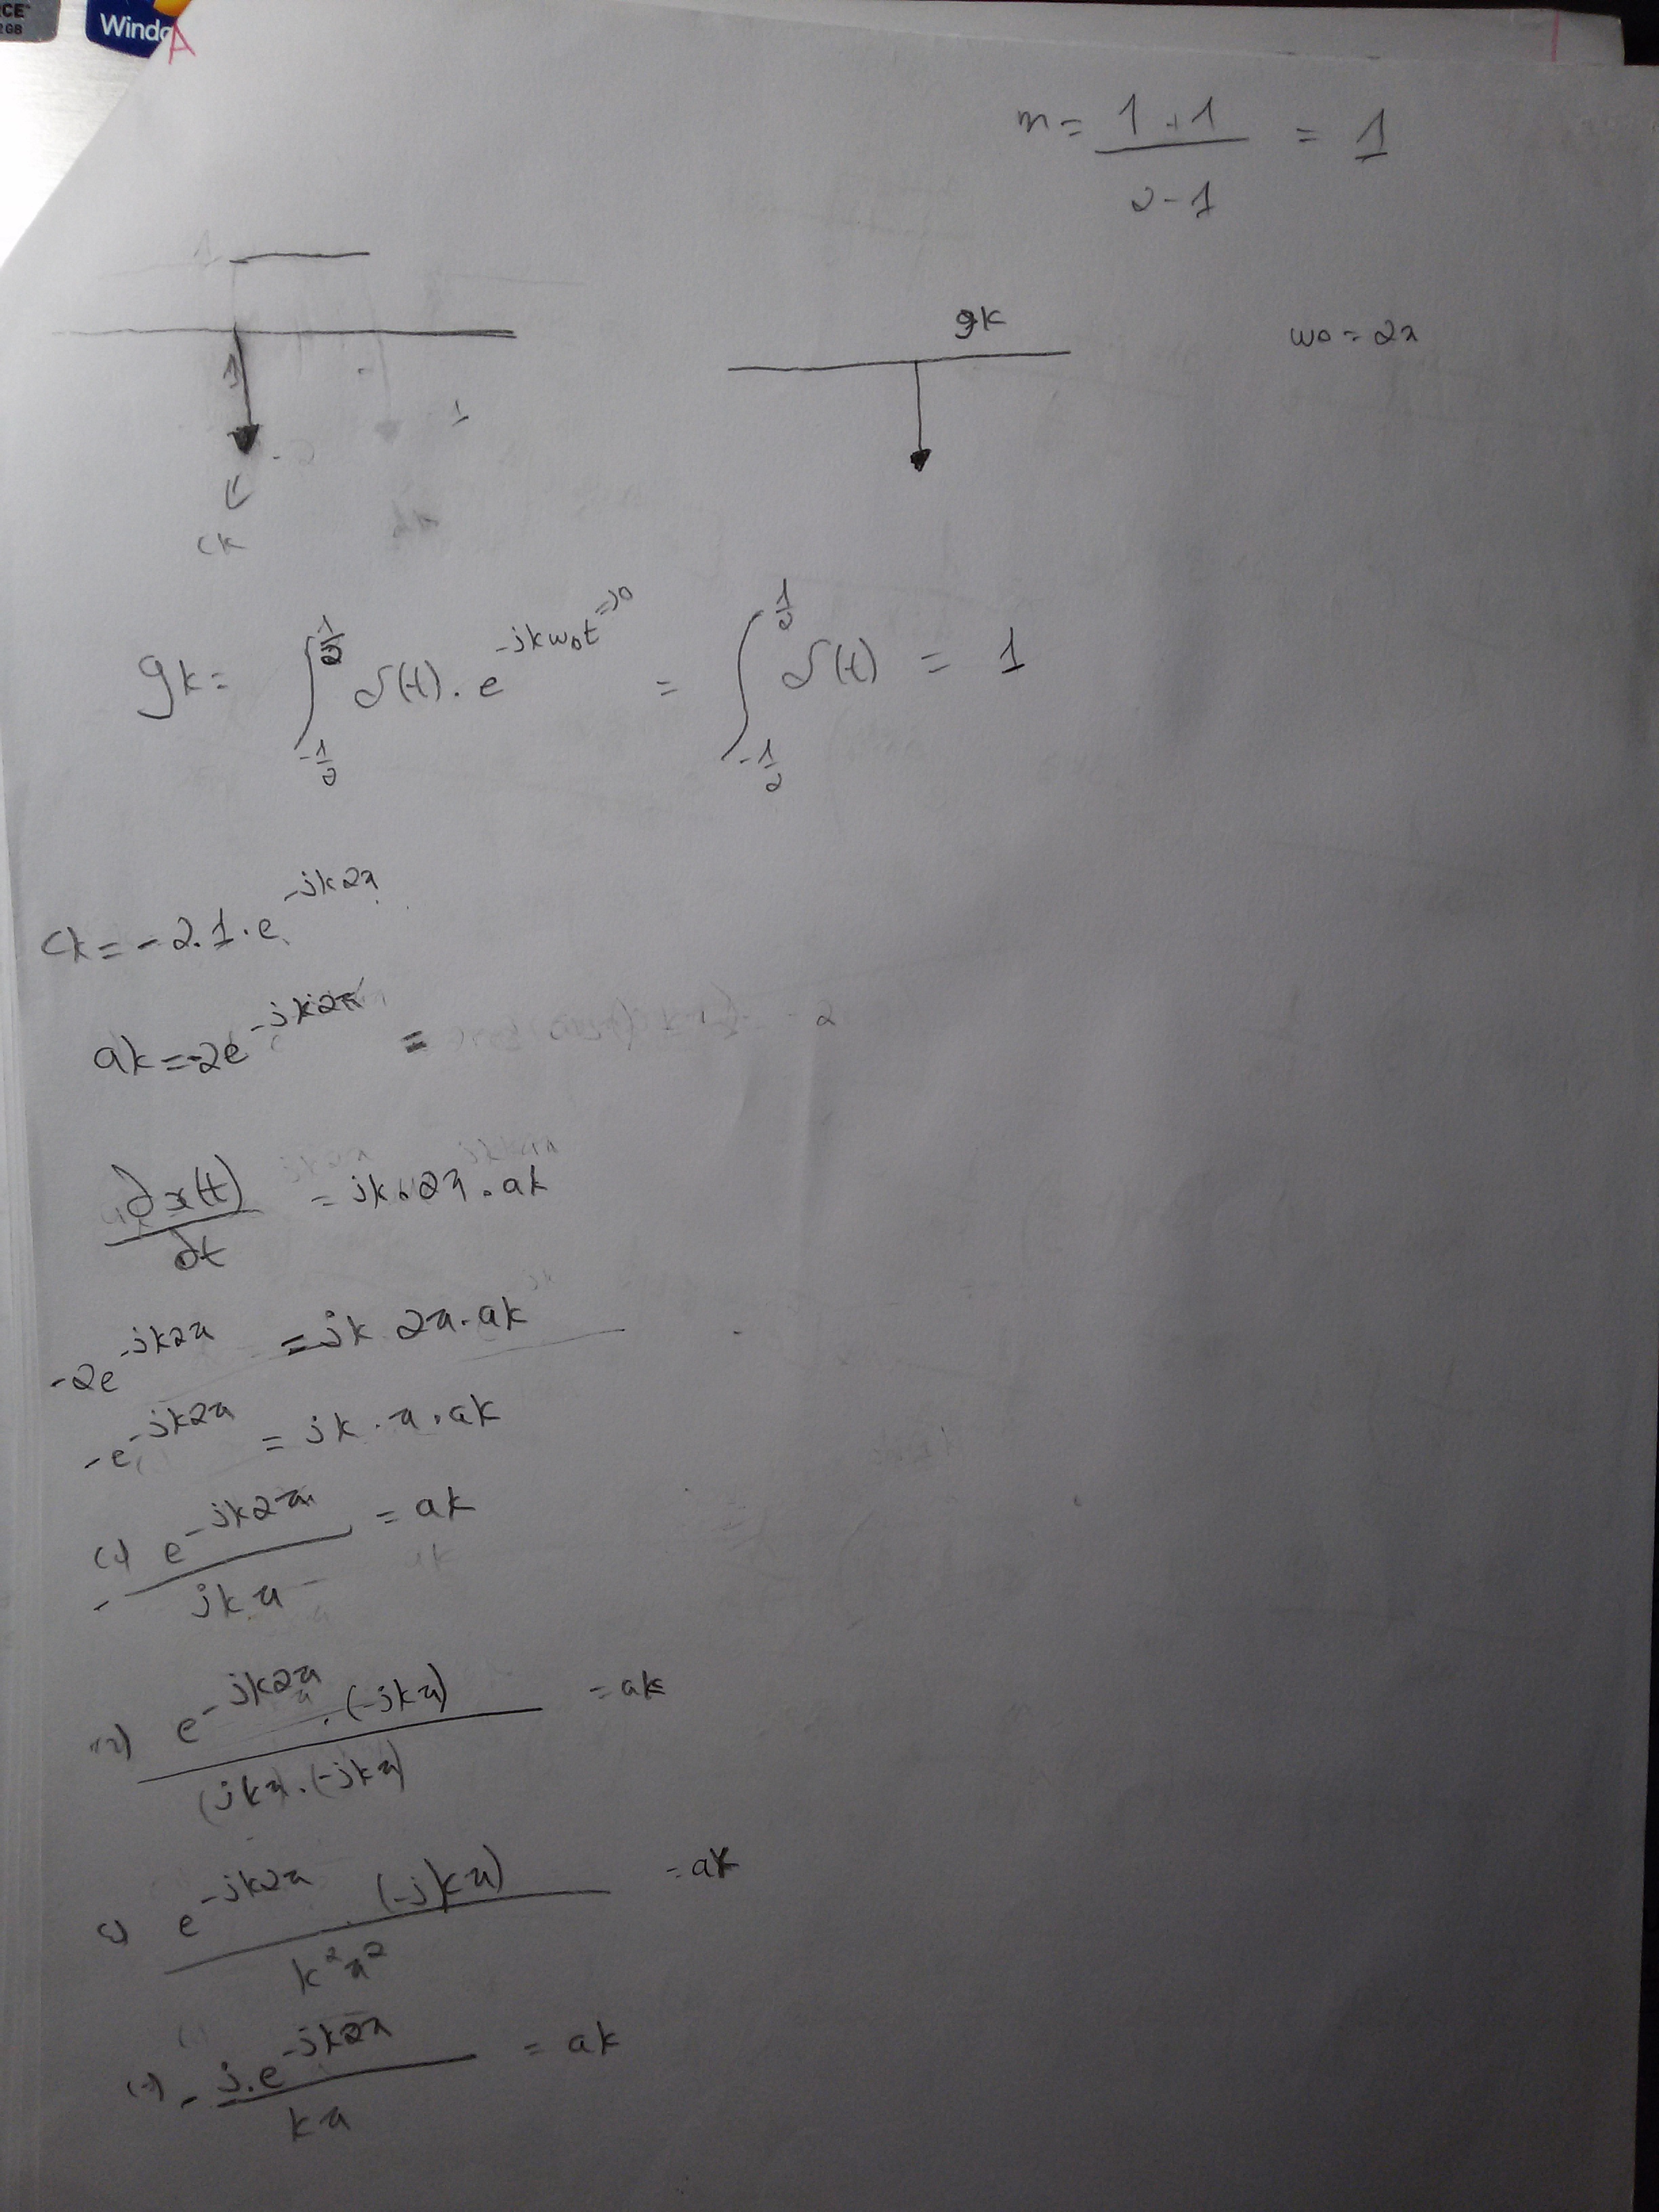 CE
2GB
Windo
A
m = 1+1 / 2-1 = 1
gk
wo = 2π
1
1
ck
gk = ∫_{-1/2}^{1/2} δ(t) . e^{-jkwot =>0} = ∫_{-1/2}^{1/2} δ(t) = 1
ck = -2.1.e^{-jk2π}
ak = -2e^{-jk2π} = -2
∂x(t)/∂t = jk.2π.ak
-2e^{-jk2π} = jk 2π.ak
-e^{-jk2π} = jk.π.ak
- e^{-jk2π} / jkπ = ak
e^{-jk2π}.(-jkπ) / (jkπ.(-jkπ) = ak
e^{-jk2π}.(-jkπ) / k²π² = ak
- j.e^{-jk2π} / kπ = ak